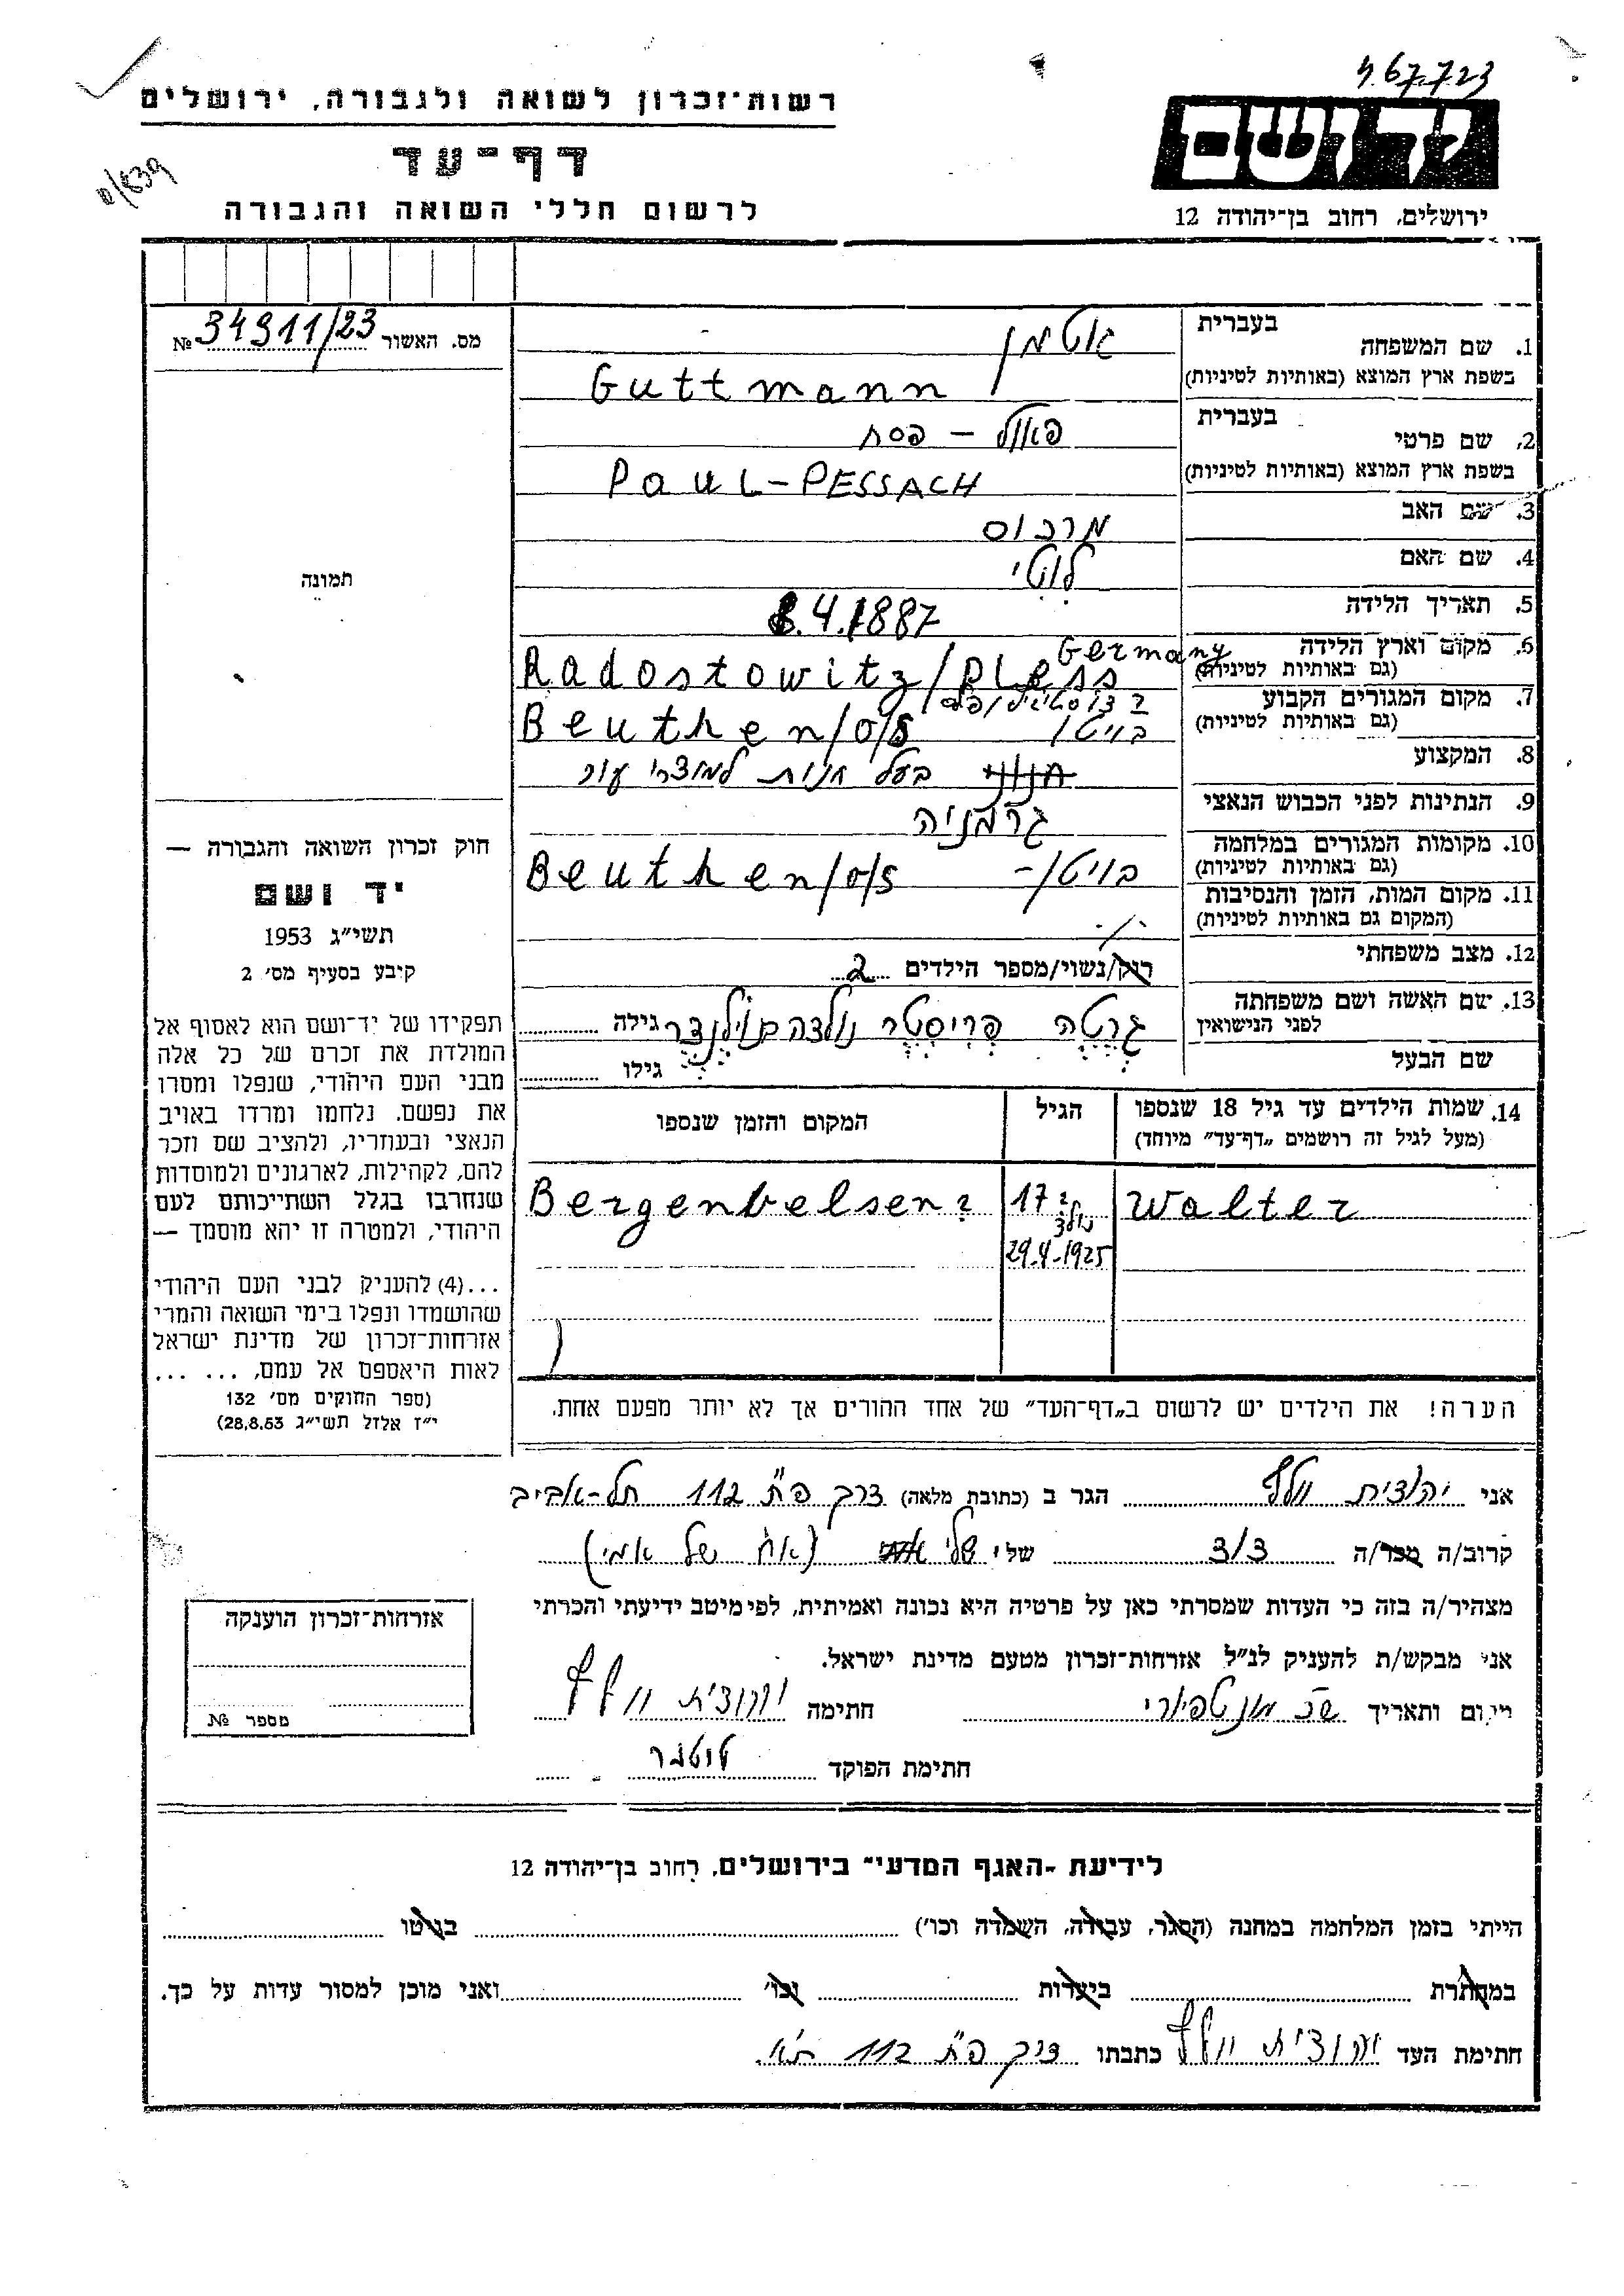 4.67.7.23
רשות־זכרון לשואה ולגבורה, ירושלים
יד ושם
דף־עד
לרשום חללי השואה והגבורה
ירושלים, רחוב בן־יהודה 12
מס. האשור № 34911/23
תמונה
1. שם המשפחה
בעברית גוטמן
בשפת ארץ המוצא (באותיות לטיניות) Guttmann
2. שם פרטי
בעברית פאול – פסח
בשפת ארץ המוצא (באותיות לטיניות) PAUL-PESSACH
3. שם האב מרכוס
4. שם האם לוטי
5. תאריך הלידה 8.4.1887
6. מקום וארץ הלידה Germany
(גם באותיות לטיניות) Radostowitz/Pless
7. מקום המגורים הקבוע
(גם באותיות לטיניות) בויטן/ Beuthen/O/S
8. המקצוע חנווני בעל חנות למוצרי עור
9. הנתינות לפני הכבוש הנאצי גרמניה
10. מקומות המגורים במלחמה
(גם באותיות לטיניות) בויטן/– Beuthen/O/S
11. מקום המות, הזמן והנסיבות
(המקום גם באותיות לטיניות) ./.
12. מצב משפחתי רוק/נשוי/מספר הילדים 2
13. שם האשה ושם משפחתה
לפני הנישואין גרטה פריסטר נולדה גילה
שם הבעל גילו
14. שמות הילדים עד גיל 18 שנספו הגיל המקום והזמן שנספו
(מעל לגיל זה רושמים „דף־עד״ מיוחד)
Walter 17? Bergenbelsen?
נולד
29.4.1925
הערה! את הילדים יש לרשום ב„דף־העד״ של אחד ההורים אך לא יותר מפעם אחת.
חוק זכרון השואה והגבורה —
יד ושם
תשי״ג 1953
קיבע בסעיף מס׳ 2
תפקידו של יד־ושם הוא לאסוף אל
המולדת את זכרם של כל אלה
מבני העם היהודי, שנפלו ומסרו
את נפשם, נלחמו ומרדו באויב
הנאצי ובעוזריו, ולהציב שם וזכר
להם, לקהילות, לארגונים ולמוסדות
שנחרבו בגלל השתייכותם לעם
היהודי, ולמטרה זו יהא מוסמך —
...(4) להעניק לבני העם היהודי
שהושמדו ונפלו בימי השואה והמרי
אזרחות־זכרון של מדינת ישראל
לאות היאספם אל עמם, ... ...
(ספר החוקים מס׳ 132
י״ז אלול תשי״ג 28.8.53)
אני יהודית וולף הגר ב (כתובת מלאה) דרך פ״ת 112 תל-אביב
קרוב/ה מכר/ה דוד של י שלי (אח של אמי)
מצהיר/ה בזה כי העדות שמסרתי כאן על פרטיה היא נכונה ואמיתית, לפי מיטב ידיעתי והכרתי
אני מבקש/ת להעניק לנ״ל אזרחות־זכרון מטעם מדינת ישראל.
מקום ותאריך שכ׳ מונטפיורי חתימה יהודית וולף
חתימת הפוקד
אזרחות־זכרון הוענקה
מספר №
לידיעת „האגף המדעי״ בירושלים, רחוב בן־יהודה 12
הייתי בזמן המלחמה במחנה (הסגר, עבודה, השמדה וכו׳) בגיטו
במחתרת ביערות וכו׳ ואני מוכן למסור עדות על כך.
חתימת העד יהודית וולף כתבתו דרך פ״ת 112 ת״א.